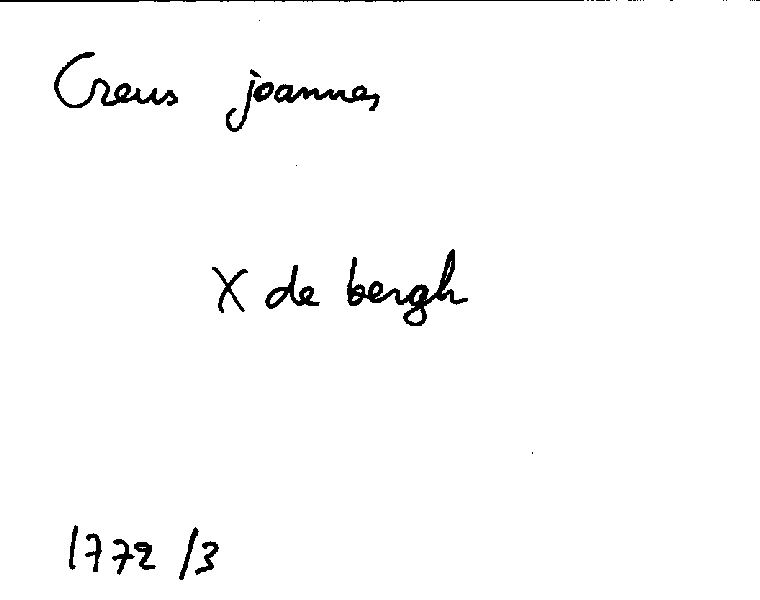 Creus joannes
X de bergh
1772 /3